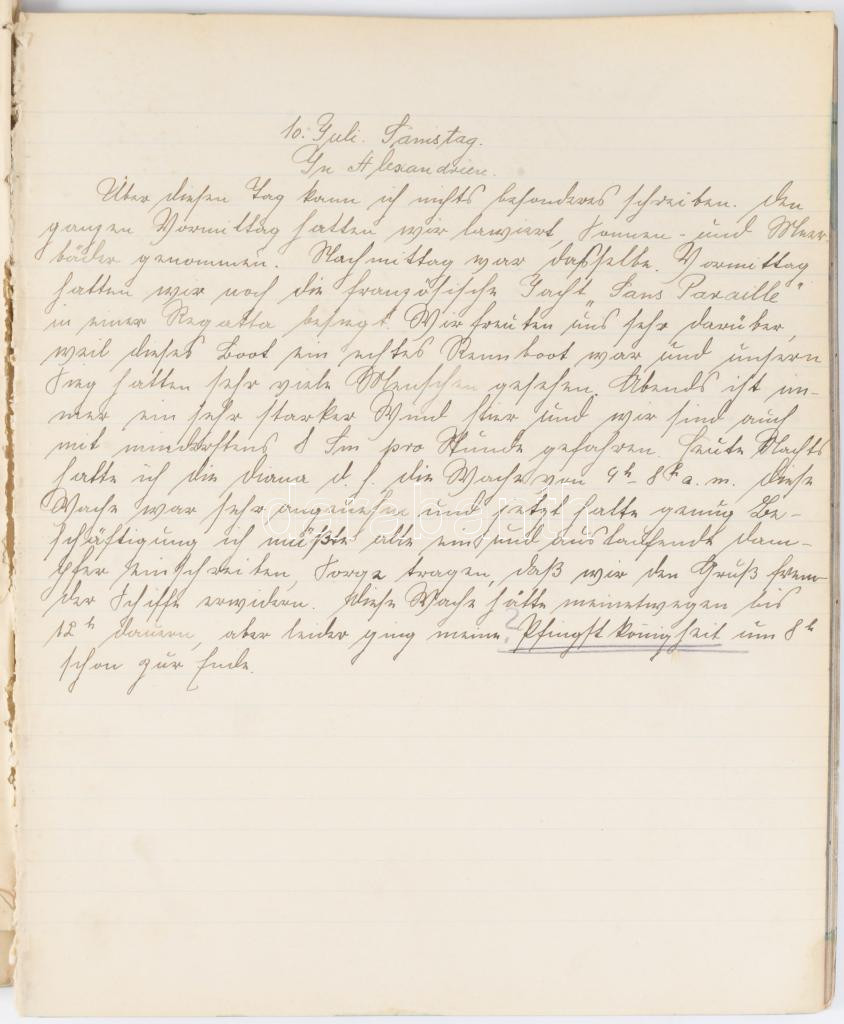 10. Juli. Samstag.
In Alexandrien.
Über diesen Tag kann ich nichts besonderes schreiben. Den
ganzen Vormittag hatten wir lawiert, Sonnen- und Meer-
bäder genommen. Nachmittag war dasselbe. Vormittag
hatten wir noch die französische Jacht „Sans Paraille"
in einer Regatta besiegt. Wir freuten uns sehr darüber,
weil dieses Boot ein echtes Rennboot war und unsern
Sieg hatten sehr viele Menschen gesehen. Abends ist im-
mer ein sehr starker Wind hier und wir sind auch
mit mindestens 8 Sm pro Stunde gefahren. Heute Nachts
hatte ich die Diana d. h. die Wache von 4h - 8h a. m. Diese
Wache war sehr angenehm und jetzt hatte genug Be-
schäftigung ich müßte alle ein und auslaufende Dam-
pfer einschreiben, Sorge tragen, daß wir den Gruß frem-
der Schiffe erwidern. Diese Wache hätte meinetwegen bis
12h dauern, aber leider ging meine ? Pfingstkönigheit um 8h
schon zur Ende.
darabanth